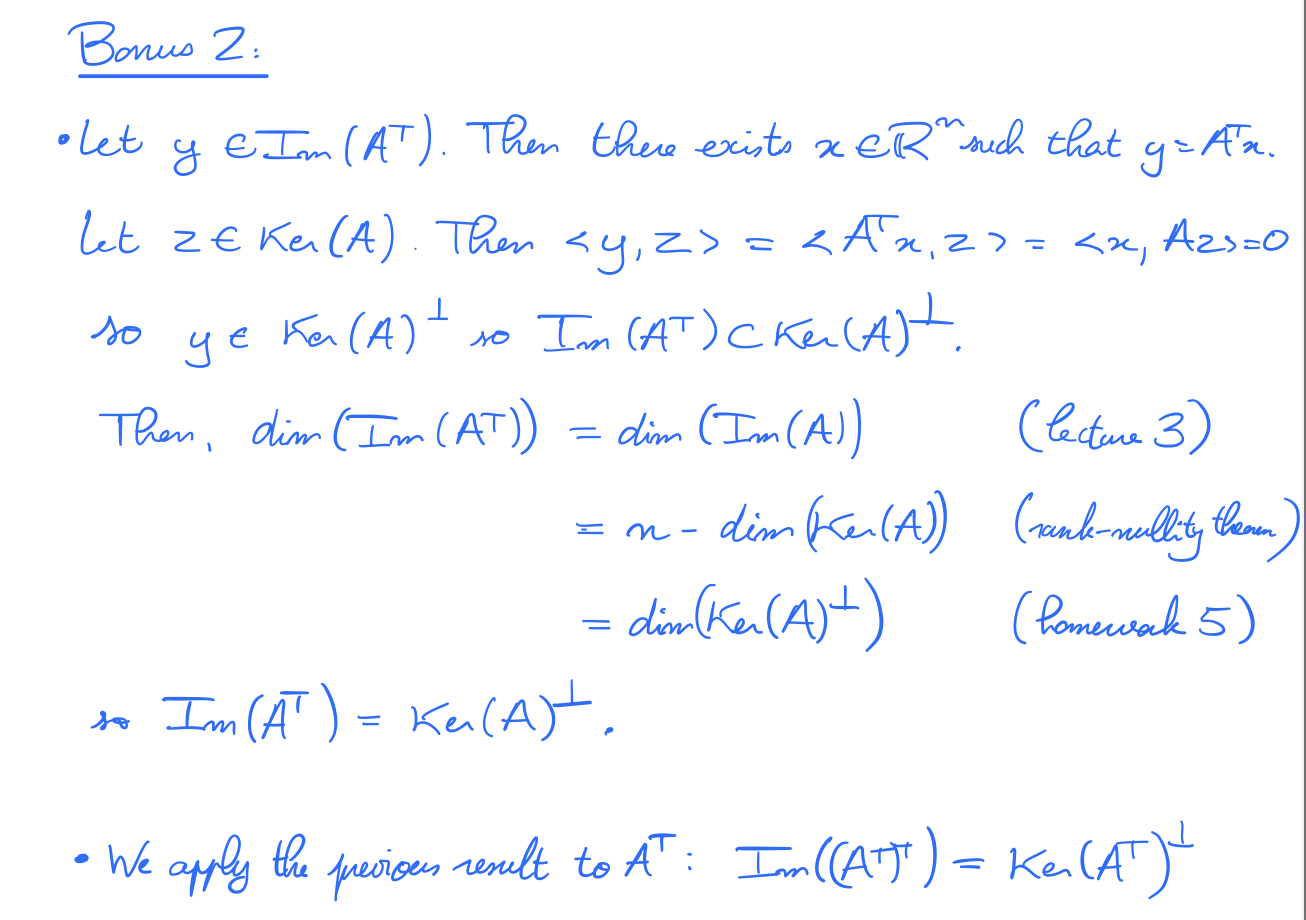 Bonus 2:
• Let y ∈ Im(Aᵀ). Then there exists x ∈ ℝⁿ such that y = Aᵀx.
Let z ∈ Ker(A). Then <y, z> = <Aᵀx, z> = <x, Az> = 0
so y ∈ Ker(A)^⊥ so Im(Aᵀ) ⊂ Ker(A)^⊥.
Then, dim(Im(Aᵀ)) = dim(Im(A)) (lecture 3)
= n - dim(Ker(A)) (rank-nullity theorem)
= dim(Ker(A)^⊥) (homework 5)
so Im(Aᵀ) = Ker(A)^⊥.
• We apply the previous result to Aᵀ: Im((Aᵀ)ᵀ) = Ker(Aᵀ)^⊥